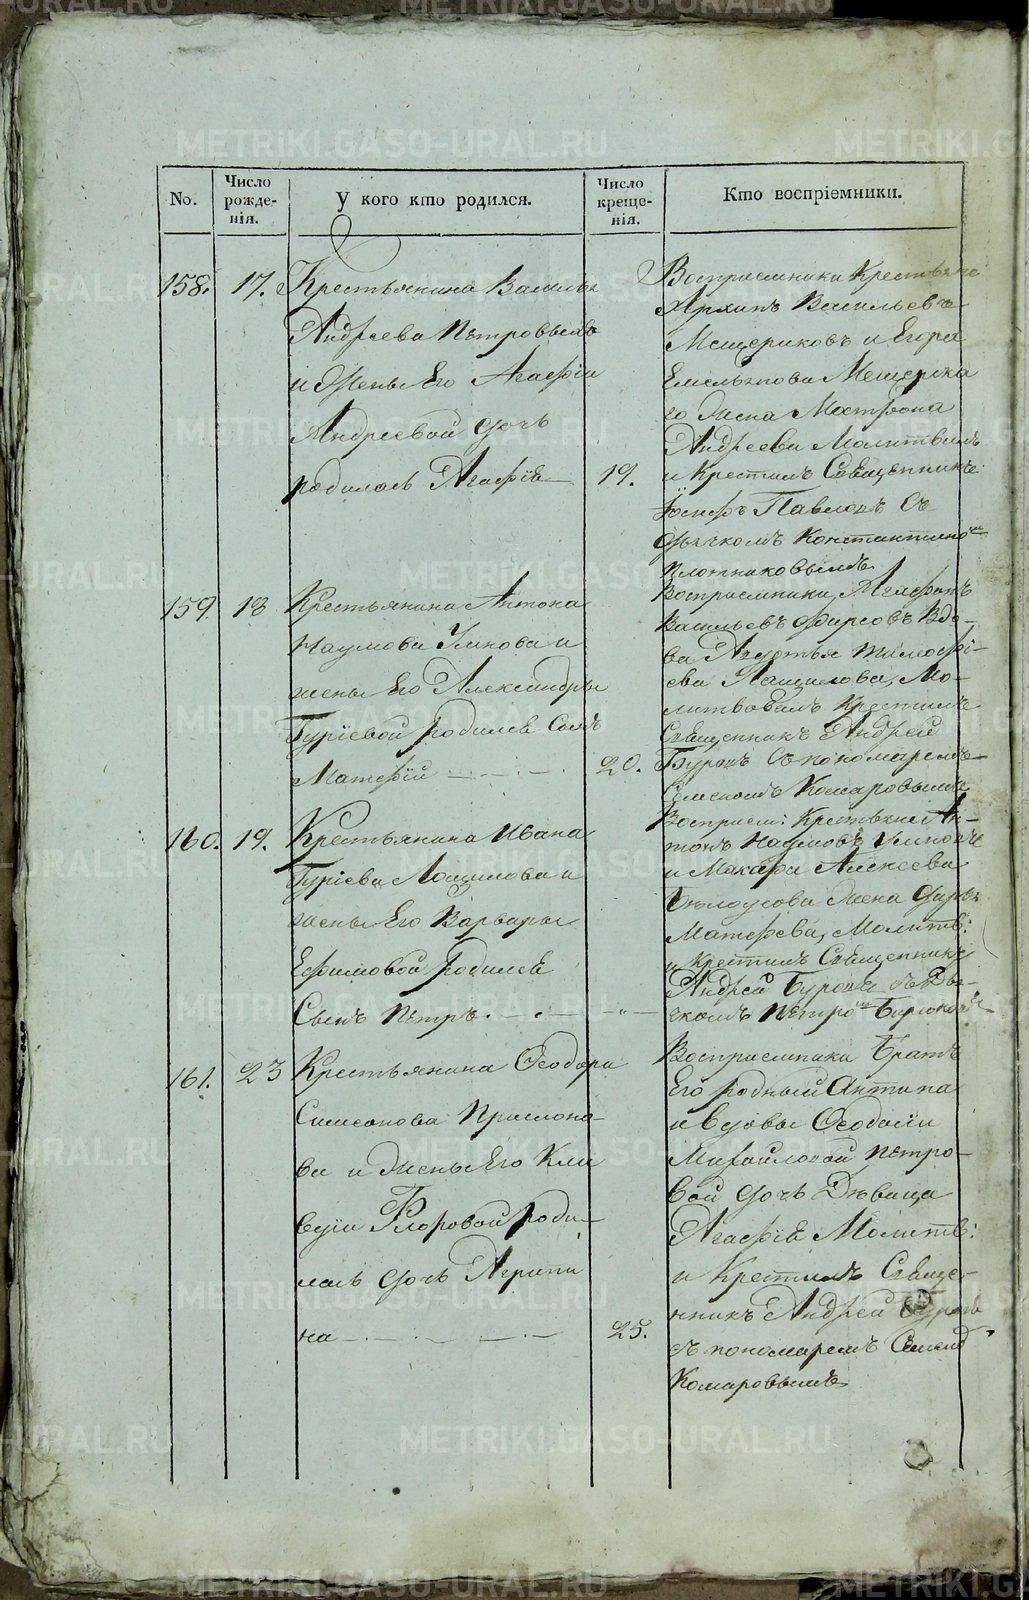 No.
Число рожде-нія.
У кого кто родился.
Число креще-нія.
Кто воспріемники.
158.
17.
Крестьянина Василья
Андреева Петровыхъ
и жены Его Агафіи
Андреевой дочь
родилась Агафія
19.
Воспріемники Крестьяне
Архипъ Васильевъ
Мещериковъ и Егора
Емельянова Мещерска
го жена Матрона
Андреева Молитвилъ
и Крестилъ Священникъ
Іосифъ Павловъ Съ
дьячкомъ Константино
Плотниковымъ
159.
18
Крестьянина Антона
Наумова Улкова и
жены Его Александры
Гуріевой родился Сынъ
Матфій
20.
Воспріемники, Агафонъ
Васильевъ Фирсовъ Вдо-
ва Тимофі-
ева Лащилова, Мо-
литвовалъ Крестилъ
Священникъ Андрей
Буровъ съ пономаремъ
Семеномъ Комаровымъ
160.
19.
Крестьянина Ивана
Гуріева Лощилова и
жены Его Варвары
Ефимовой родился
Сынъ Петръ
"
Воспріем: Крестьяне Ан-
тонъ Наумовъ
и Макара Алексеева
Белоусова жена Дарья
Матфеева, Молитв:
и Крестилъ Священникъ
Андрей Буровъ съ Дья-
чкомъ Петро
161.
23
Крестьянина Феодора
Симеонова Прислоно-
ва и жены Его Кла
вдіи Флоровой роди-
лась дочь Агрипи
на
25.
Воспріемники братъ
Его родный Антипа
и вдовы Феодосіи
Михайловой Петро-
вой дочь Дѣвица
Агафія Молитв:
и Крестилъ Священ-
никъ Андрей Буровъ
съ пономаремъ Семено
Комаровымъ
METRIKI.GASO-URAL.RU